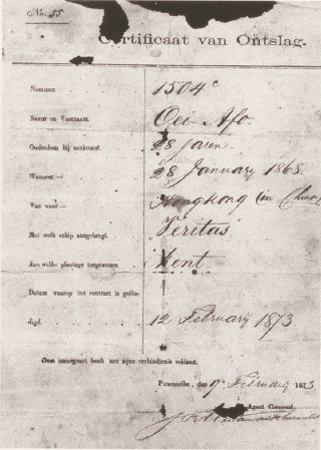 No. 55
Certificaat van Ontslag.
Nummer 1504c
Naam en Voornaam. Oei Afo.
Ouderdom bij aankomst. 28 jaren.
Wanneer 28 January 1868.
Van waar Hongkong (in China)
Met welk schip aangebragt. Veritas
Aan welke plantage toegewezen Kent
Datum waarop het contract is geëin-
digd. 12 February 1873.
Deze immigrant heeft aan zijne verbindtenis voldaan.
Paramaribo, den 17n February 1873
Agent Generaal,